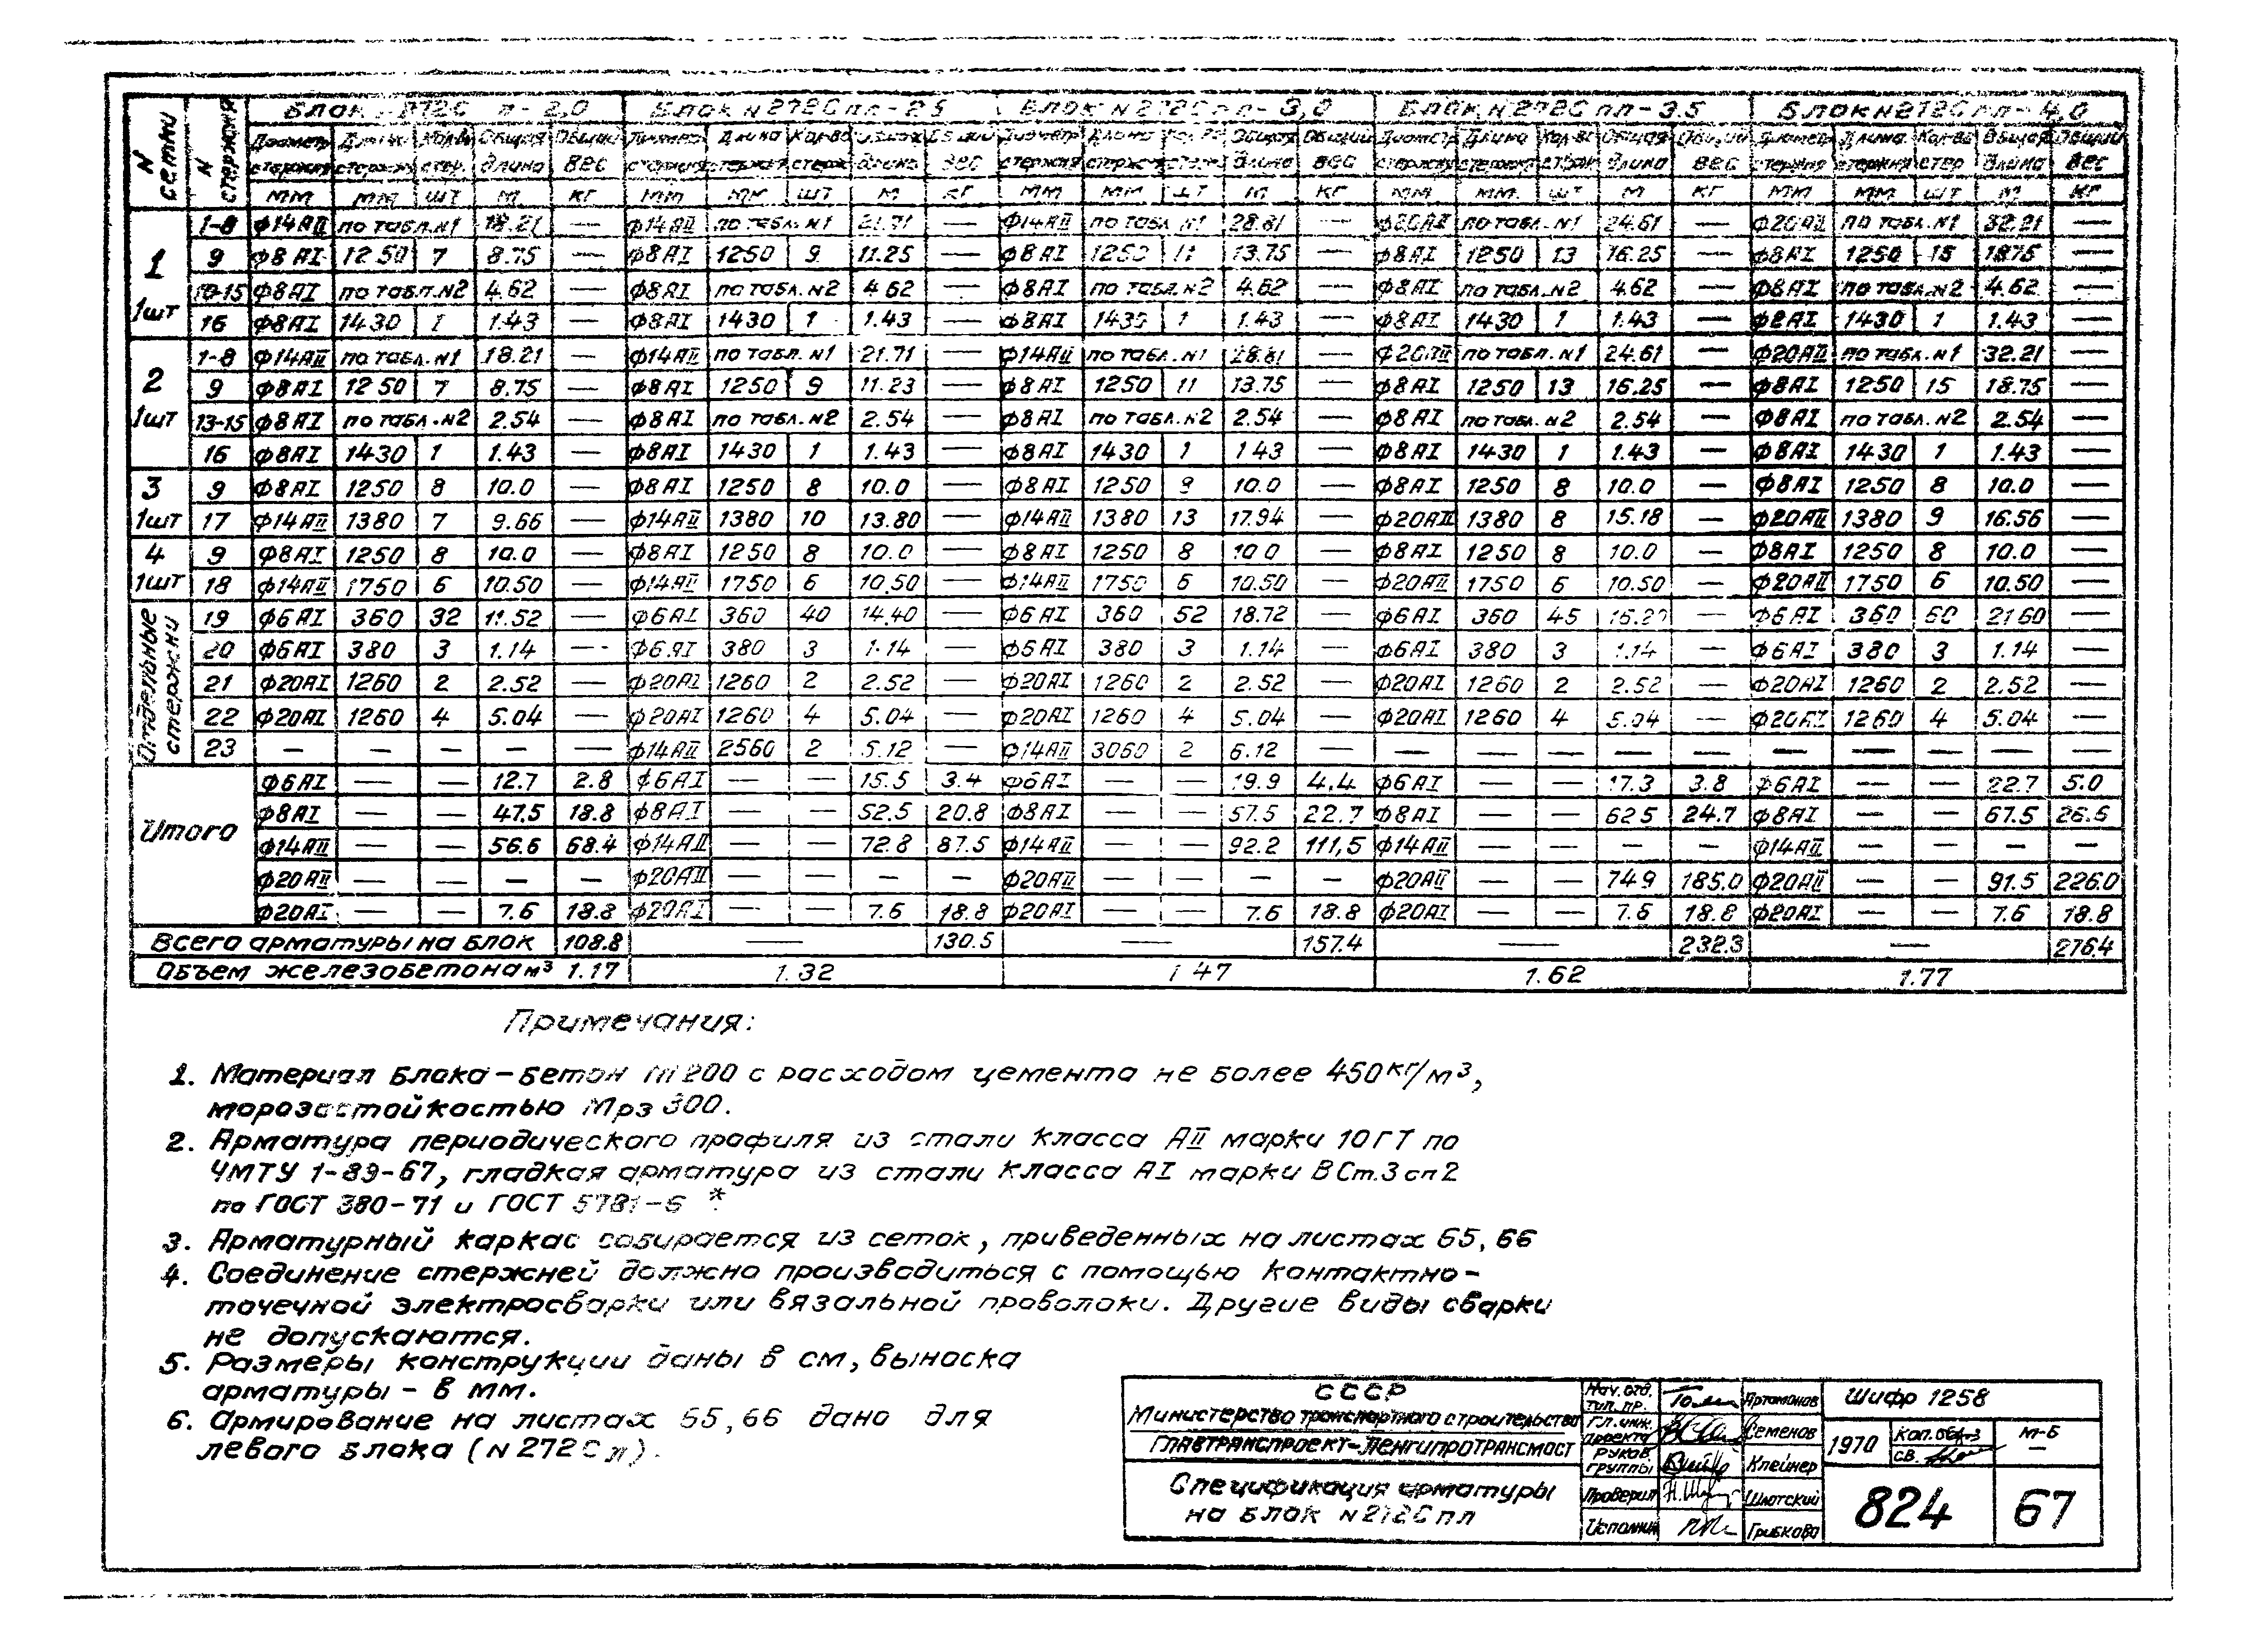 N сетки N стержня Блок 272С п - 2,0 Блок N 272С пл - 2.5 Блок N 272С пл - 3,0 Блок N 272С пл - 3.5 Блок N 272С пл - 4,0
Диаметр Длина Кол-во Общая Общий Диаметр Длина Кол-во Общая Общий Диаметр Длина Кол-во Общая Общий Диаметр Длина Кол-во Общая Общий Диаметр Длина Кол-во Общая Общий
стержня стержня стер. длина вес стержня стержня стерж длина вес стержня стержня стерж длина вес стержня стержня стерж длина вес стержня стержня стер длина вес
мм мм шт м кг мм мм шт м кг мм мм шт м кг мм мм. шт м кг мм мм шт м кг
1 1шт
1-8 ф14АII по табл.N1 18.21 — ф14АII по табл. N1 21.71 — ф14АII по табл. N1 28.81 — ф20АII по табл. N1 24.61 — ф20АII по табл. N1 32.21 —
9 ф8АI 1250 7 8.75 — ф8АI 1250 9 11.25 — ф8АI 1250 11 13.75 — ф8АI 1250 13 16.25 — ф8АI 1250 15 18.75 —
10-15 ф8АI по табл.N2 4.62 — ф8АI по табл. N2 4.62 — ф8АI по табл. N2 4.62 — ф8АI по табл. N2 4.62 — ф8АI по табл. N2 4.62 —
16 ф8АI 1430 1 1.43 — ф8АI 1430 1 1.43 — ф8АI 1430 1 1.43 — ф8АI 1430 1 1.43 — ф8АI 1430 1 1.43 —
2 1шт
1-8 ф14АII по табл. N1 18.21 — ф14АII по табл. N1 21.71 — ф14АII по табл. N1 28.81 — ф20АII по табл. N1 24.61 — ф20АII по табл. N1 32.21 —
9 ф8АI 1250 7 8.75 — ф8АI 1250 9 11.23 — ф8АI 1250 11 13.75 — ф8АI 1250 13 16.25 — ф8АI 1250 15 18.75 —
13-15 ф8АI по табл. N2 2.54 — ф8АI по табл. N2 2.54 — ф8АI по табл. N2 2.54 — ф8АI по табл. N2 2.54 — ф8АI по табл. N2 2.54 —
16 ф8АI 1430 1 1.43 — ф8АI 1430 1 1.43 — ф8АI 1430 1 1 43 — ф8АI 1430 1 1.43 — ф8АI 1430 1 1.43 —
3 1шт
9 ф8АI 1250 8 10.0 — ф8АI 1250 8 10.0 — ф8АI 1250 8 10.0 — ф8АI 1250 8 10.0 — ф8АI 1250 8 10.0 —
17 ф14АII 1380 7 9.66 — ф14АII 1380 10 13.80 — ф14АII 1380 13 17.94 — ф20АII 1380 8 15.18 — ф20АII 1380 9 16.56 —
4 1шт
9 ф8АI 1250 8 10.0 — ф8АI 1250 8 10.0 — ф8АI 1250 8 10 0 — ф8АI 1250 8 10.0 — ф8АI 1250 8 10.0 —
18 ф14АII 1750 6 10.50 — ф14АII 1750 6 10.50 — ф14АII 1750 6 10.50 — ф20АII 1750 6 10.50 — ф20АII 1750 6 10.50 —
Отдельные стержни
19 ф6АI 360 32 11.52 — ф6АI 360 40 14.40 — ф6АI 360 52 18.72 — ф6АI 360 45 16.20 — ф6АI 360 60 21 60 —
20 ф6АI 380 3 1.14 — ф6АI 380 3 1.14 — ф6АI 380 3 1.14 — ф6АI 380 3 1.14 — ф6АI 380 3 1.14 —
21 ф20АI 1260 2 2.52 — ф20АI 1260 2 2.52 — ф20АI 1260 2 2.52 — ф20АI 1260 2 2.52 — ф20АI 1260 2 2.52 —
22 ф20АI 1260 4 5.04 — ф20АI 1260 4 5.04 — ф20АI 1260 4 5.04 — ф20АI 1260 4 5.04 — ф20АI 1260 4 5.04 —
23 — — — — — ф14АII 2560 2 5.12 — ф14АII 3060 2 6.12 — — — — — — — — — — —
Итого
ф6АI — — 12.7 2.8 ф6АI — — 15.5 3.4 ф6АI — — 19.9 4.4 ф6АI — — 17.3 3.8 ф6АI — — 22.7 5.0
ф8АI — — 47.5 18.8 ф8АI — — 52.5 20.8 ф8АI — — 57.5 22.7 ф8АI — — 62 5 24.7 ф8АI — — 67.5 26.6
ф14АII — — 56.6 68.4 ф14АII — — 72.8 87.5 ф14АII — — 92.2 111,5 ф14АII — — — — ф14АII — — — —
ф20АII — — — — ф20АII — — — — ф20АII — — — — ф20АII — — 74.9 185.0 ф20АII — — 91.5 226.0
ф20АI — — 7.6 18.8 ф20АI — — 7.6 18.8 ф20АI — — 7.6 18.8 ф20АI — — 7.6 18.8 ф20АI — — 7.6 18.8
Всего арматуры на блок 108.8 — 130.5 — 157.4 — 232.3 — 276.4
Объем железобетона м³ 1.17 1.32 1 47 1.62 1.77
Примечания:
1. Материал блока - бетон М 200 с расходом цемента не более 450 кг/м³,
морозостойкостью Мрз 300.
2. Арматура периодического профиля из стали класса АII марки 10ГТ по
ЧМТУ 1-89-67, гладкая арматура из стали класса АI марки В Ст.3 сп 2
по ГОСТ 380-71 и ГОСТ 5781-6 *.
3. Арматурный каркас собирается из сеток, приведенных на листах 65, 66
4. Соединение стержней должно производиться с помощью контактно-
точечной электросварки или вязальной проволоки. Другие виды сварки
не допускаются.
5. Размеры конструкции даны в см, выноска
арматуры - в мм.
6. Армирование на листах 65, 66 дано для
левого блока (N 272С л).
СССР
Министерство транспортного строительства
Главтранспроект-Ленгипротрансмост
Спецификация арматуры
на блок N 272С пл
Нач. отд. тип. пр. Артамонов
Гл. инж. проекта Семенов
Руков. группы Клейнер
Проверил Шлотский
Исполнил Грибкова
Шифр 1258
1970 Коп. св. М-Б —
824 67